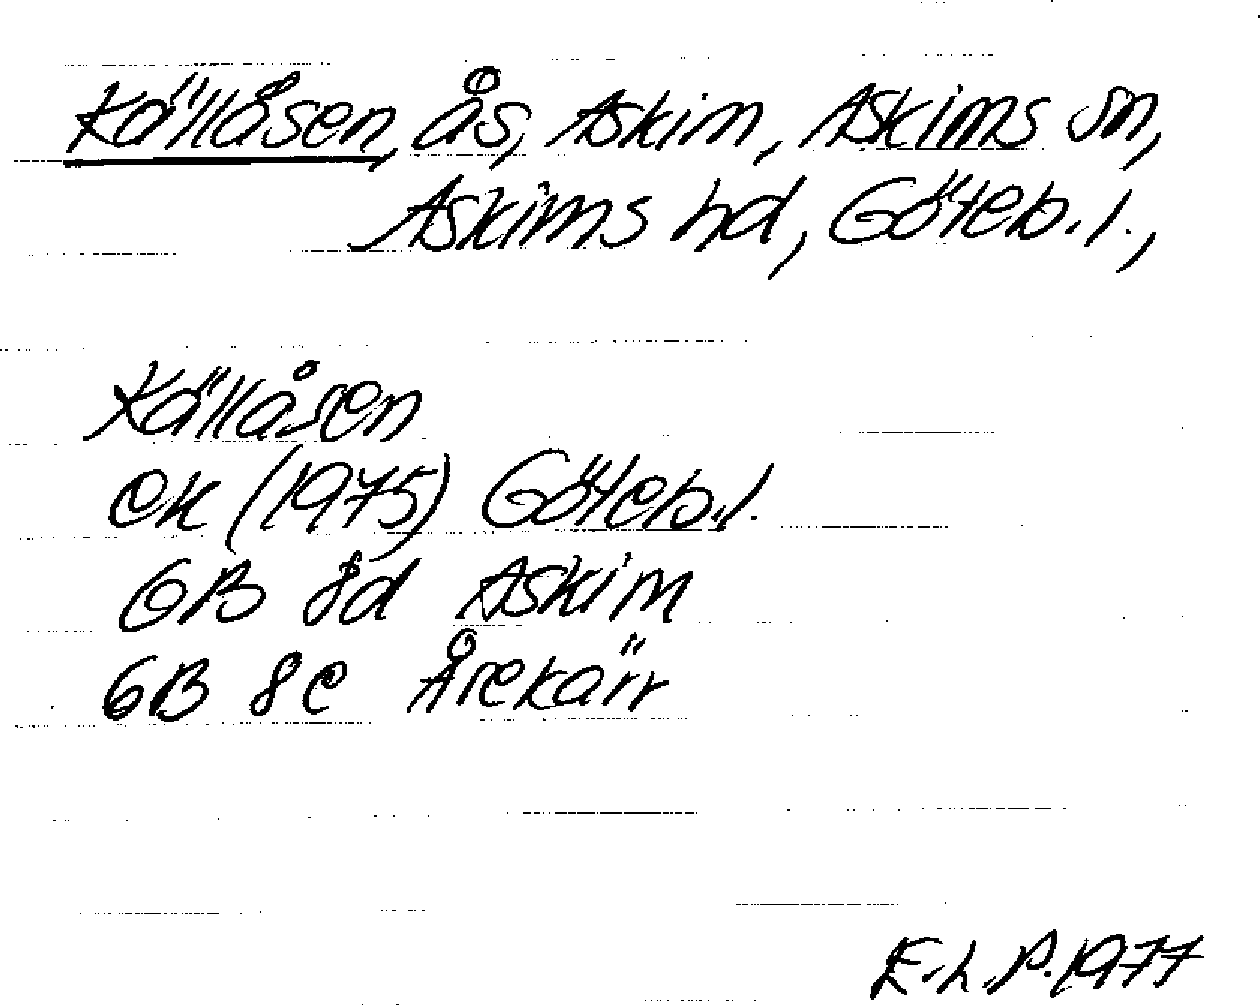 Källåsen, ås, Askim, Askims sn,
Askims hd, Göteb. l.,
Källåsen
ek (1975) Göteb. l.
GB 8d Askim
GB 8e Årekärr
E.L.P. 1977